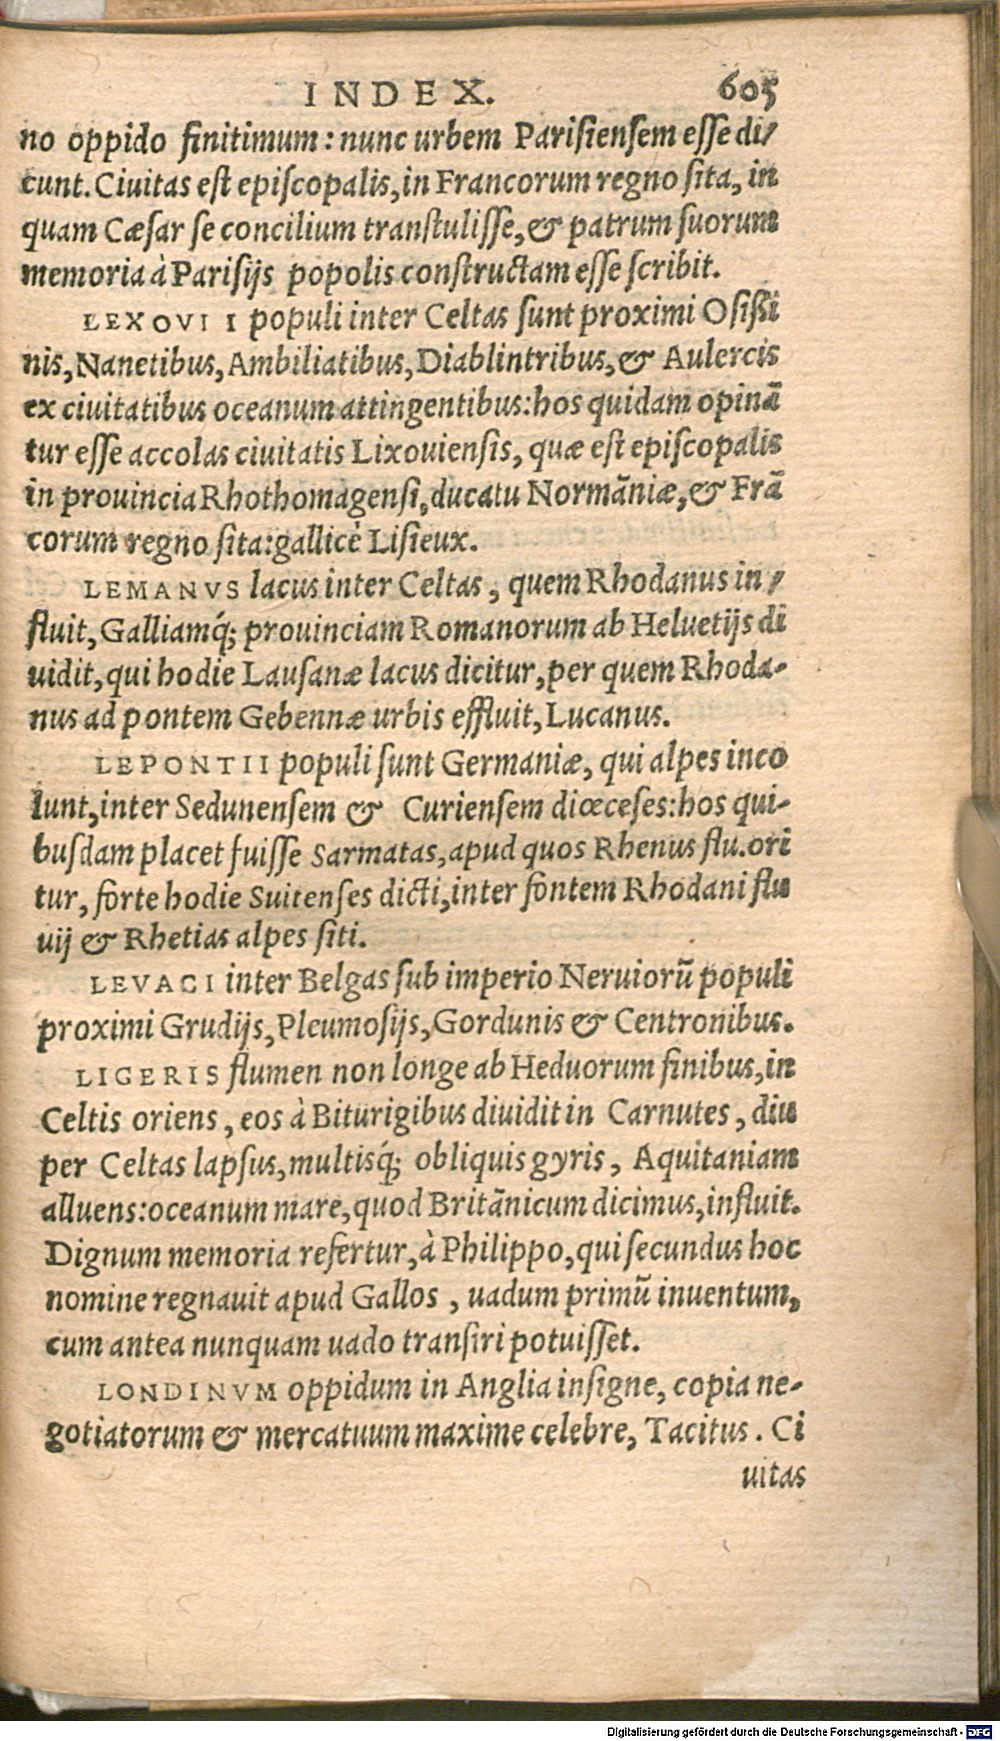 INDEX. 605
no oppido finitimum: nunc urbem Parisiensem esse di/
cunt. Ciuitas est episcopalis, in Francorum regno sita, in
quam Cæsar se concilium transtulisse, & patrum suorum
memoria à Parisijs popolis constructam esse scribit.
LEXOVII populi inter Celtas sunt proximi Osissi
nis, Nanetibus, Ambiliatibus, Diablintribus, & Aulercis
ex ciuitatibus oceanum attingentibus: hos quidam opinã
tur esse accolas ciuitatis Lixouiensis, quæ est episcopalis
in prouincia Rhothomagensi, ducatu Normãniæ, & Frã
corum regno sita: gallicè Lisieux.
LEMANVS lacus inter Celtas, quem Rhodanus in/
fluit, Galliamq́; prouinciam Romanorum ab Heluetijs di
uidit, qui hodie Lausanæ lacus dicitur, per quem Rhoda-
nus ad pontem Gebennæ urbis effluit, Lucanus.
LEPONTII populi sunt Germaniæ, qui alpes inco
lunt, inter Sedunensem & Curiensem diœceses: hos qui-
busdam placet fuisse Sarmatas, apud quos Rhenus flu. ori
tur, forte hodie Suitenses dicti, inter fontem Rhodani flu
uij & Rhetias alpes siti.
LEVACI inter Belgas sub imperio Neruiorũ populi
proximi Grudijs, Pleumosijs, Gordunis & Centronibus.
LIGERIS flumen non longe ab Heduorum finibus, in
Celtis oriens, eos à Biturigibus diuidit in Carnutes, diu
per Celtas lapsus, multisq́; obliquis gyris, Aquitaniam
alluens: oceanum mare, quod Britãnicum dicimus, influit.
Dignum memoria refertur, à Philippo, qui secundus hoc
nomine regnauit apud Gallos, uadum primũ inuentum,
cum antea nunquam uado transiri potuisset.
LONDINVM oppidum in Anglia insigne, copia ne-
gotiatorum & mercatuum maxime celebre, Tacitus. Ci
uitas
Digitalisierung gefördert durch die Deutsche Forschungsgemeinschaft - DFG